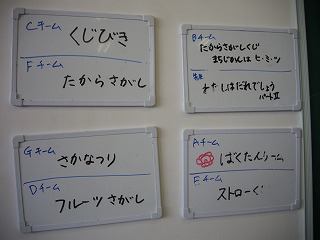 Cチーム
くじびき
Fチーム
たからさがし
Bチーム
たからさがしくじ
まちじかんは ヒ・ミ・ツ
先生
わたしはだれでしょう
パートⅡ
Gチーム
さかなつり
Dチーム
フルーツさがし
Aチーム
ばくだんゲーム
Eチーム
ストロー